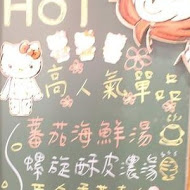 HOT
高人氣單品
蕃茄海鮮湯
螺旋酥皮濃湯